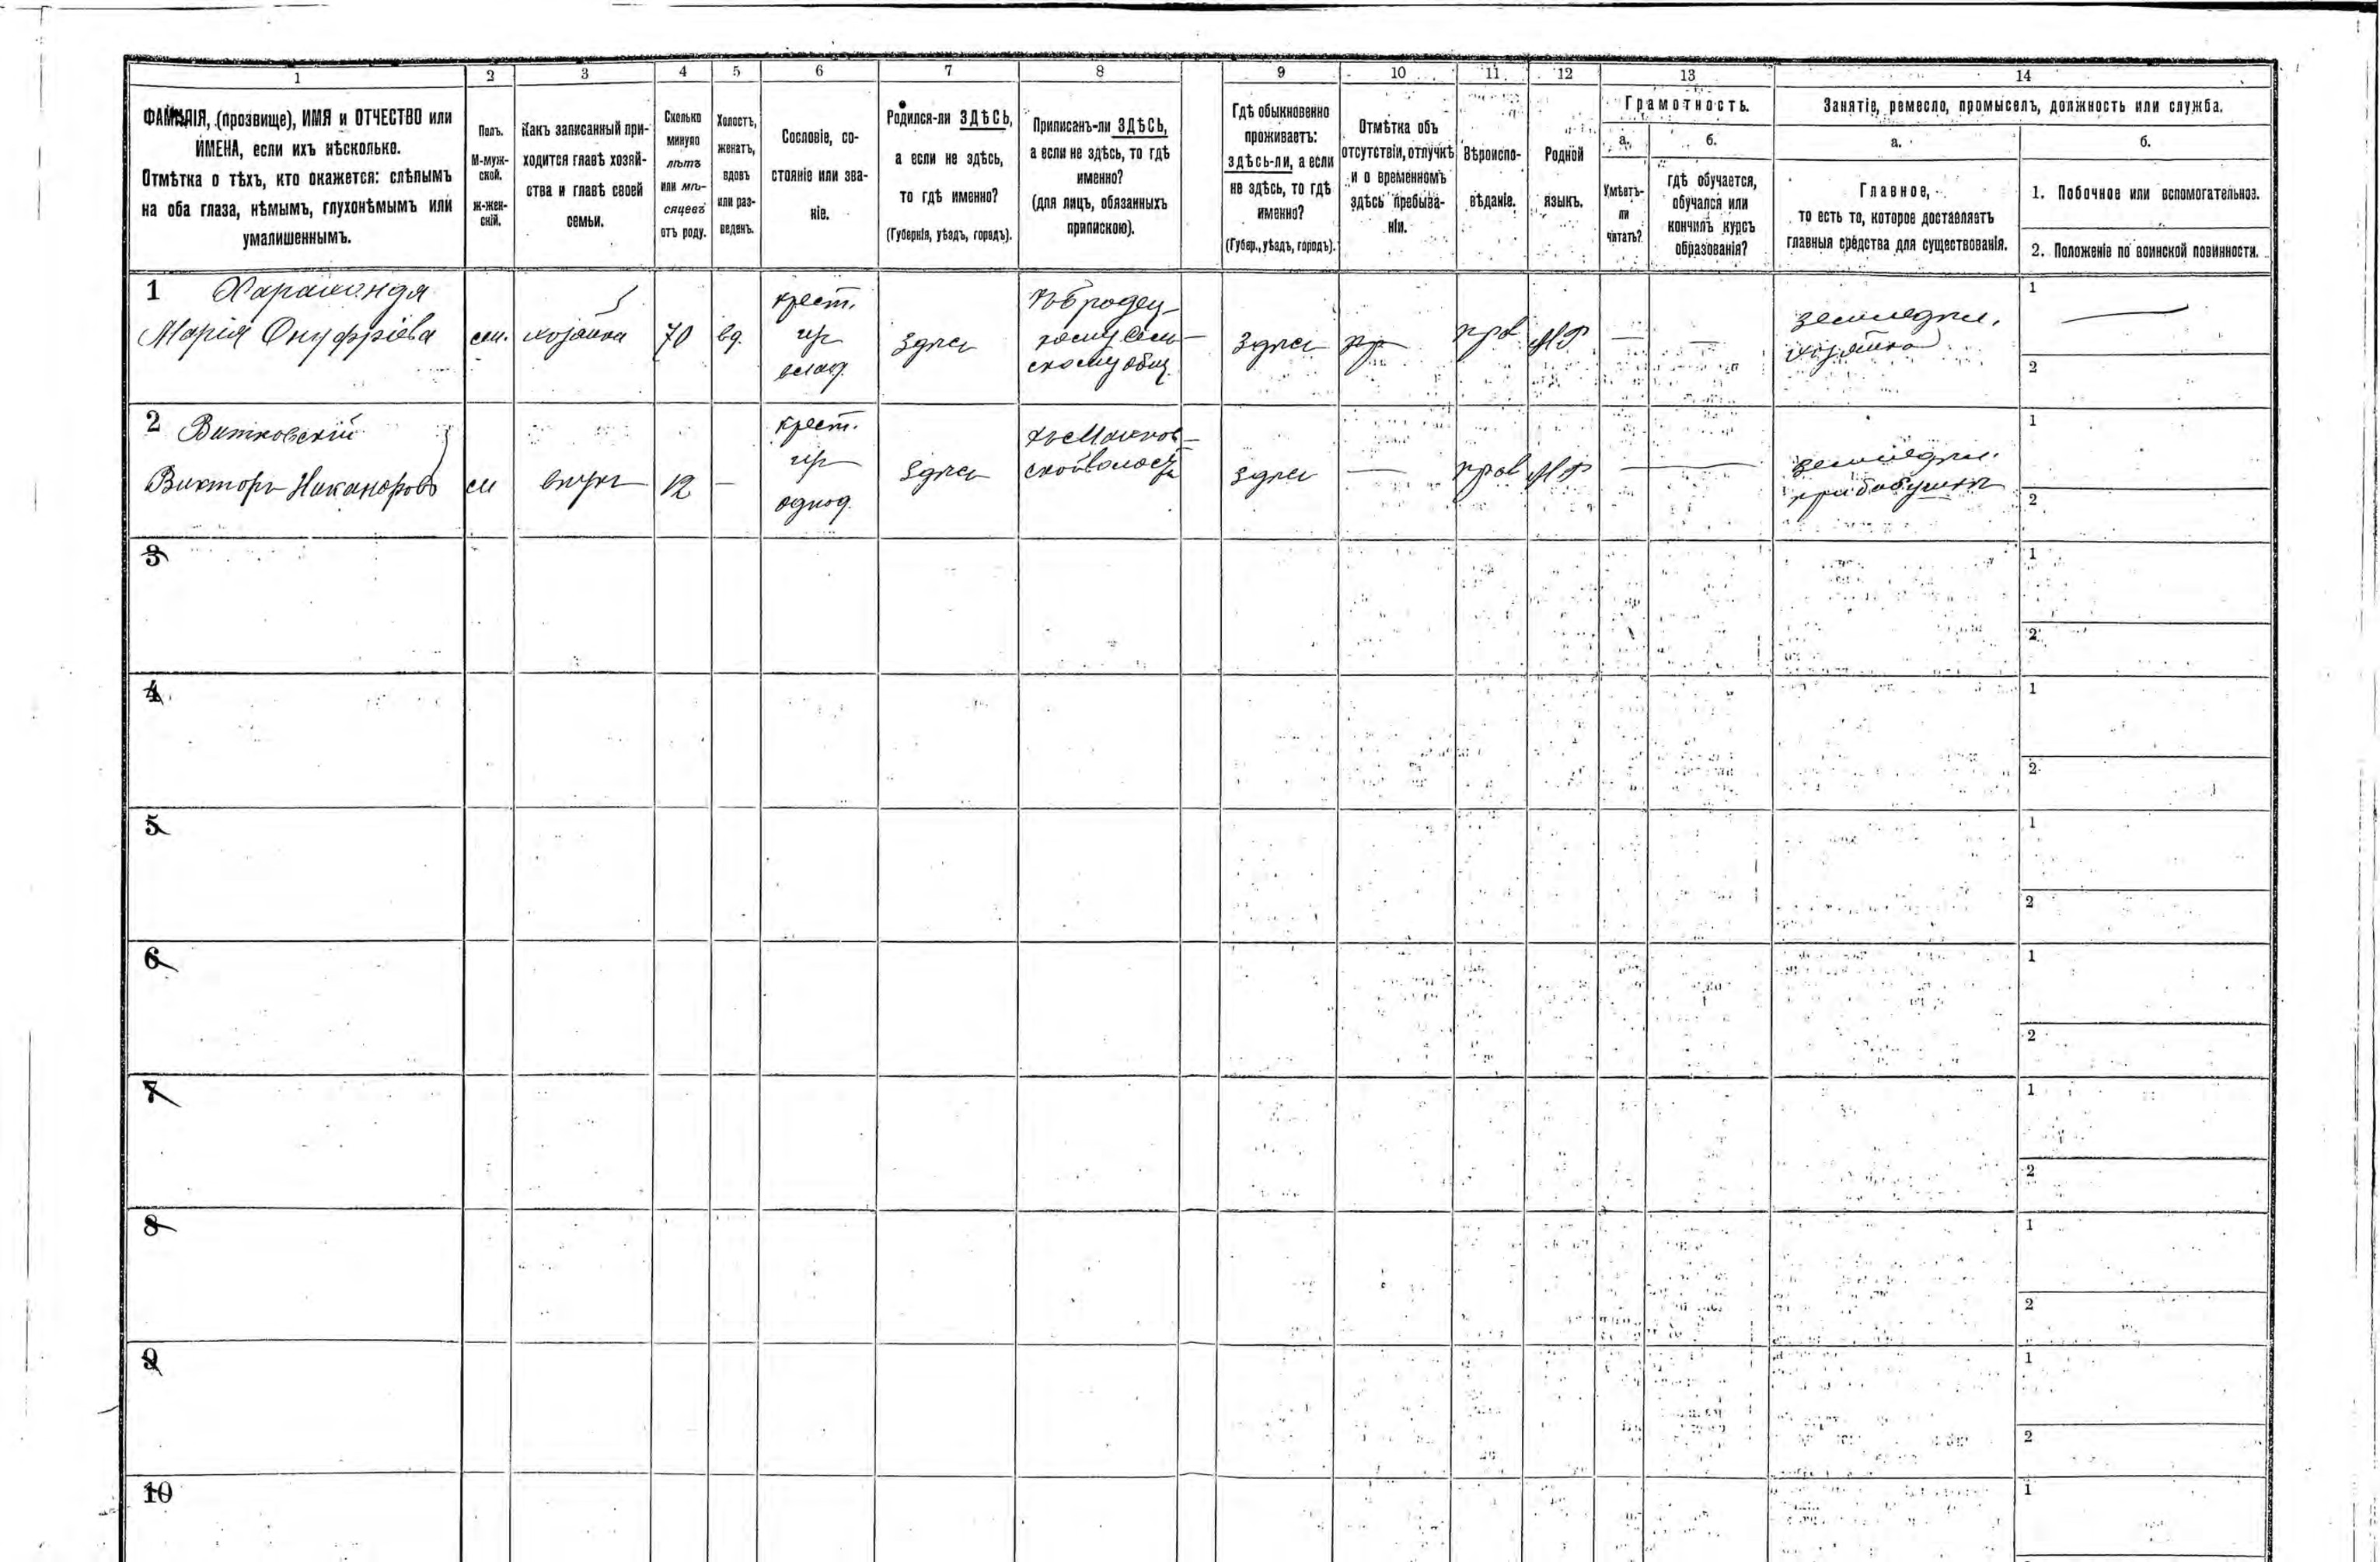 1 2 3 4 5 6 7 8 9 10 11 12 13 14
ФАМИЛІЯ, (прозвище), ИМЯ и ОТЧЕСТВО или
ИМЕНА, если ихъ нѣсколько.
Отмѣтка о тѣхъ, кто окажется: слѣпымъ
на оба глаза, нѣмымъ, глухонѣмымъ или
умалишеннымъ.
Полъ.
М-муж-
ской.
Ж-жен-
скій.
Какъ записанный при-
ходится главѣ хозяй-
ства и главѣ своей
семьи.
Сколько
минуло
лѣтъ
или мѣ-
сяцевъ
отъ роду.
Холостъ,
женатъ,
вдовъ
или раз-
веденъ.
Сословіе, со-
стояніе или зва-
ніе.
Родился-ли ЗДѢСЬ,
а если не здѣсь,
то гдѣ именно?
(Губернія, уѣздъ, городъ).
Приписанъ-ли ЗДѢСЬ,
а если не здѣсь, то гдѣ
именно?
(для лицъ, обязанныхъ
припискою).
Гдѣ обыкновенно
проживаетъ:
здѣсь-ли, а если
не здѣсь, то гдѣ
именно?
(Губер., уѣздъ, городъ).
Отмѣтка объ
отсутствіи, отлучкѣ
и о временномъ
здѣсь пребыва-
ніи.
Вѣроиспо-
вѣданіе.
Родной
языкъ.
Грамотность.
а.
Умѣетъ-
ли
читать?
б.
гдѣ обучается,
обучался или
кончилъ курсъ
образованія?
Занятіе, ремесло, промыселъ, должность или служба.
а.
Главное,
то есть то, которое доставляетъ
главныя средства для существованія.
б.
1. Побочное или вспомогательное.
2. Положеніе по воинской повинности.
1
Марія Онуфріева
хозяйка
70
вд.
крест.
здѣсь
здѣсь
прав
МР
земледѣл.
хозяйка
1
2
2 Витковскій
Викторъ Никаноровъ
м
внукъ
12
крест.
однод.
здѣсь
здѣсь
прав
МР
земледѣл.
при бабушкѣ
1
2
3
1
2
4
1
2
5
1
2
6
1
2
7
1
2
8
1
2
9
1
2
10
1